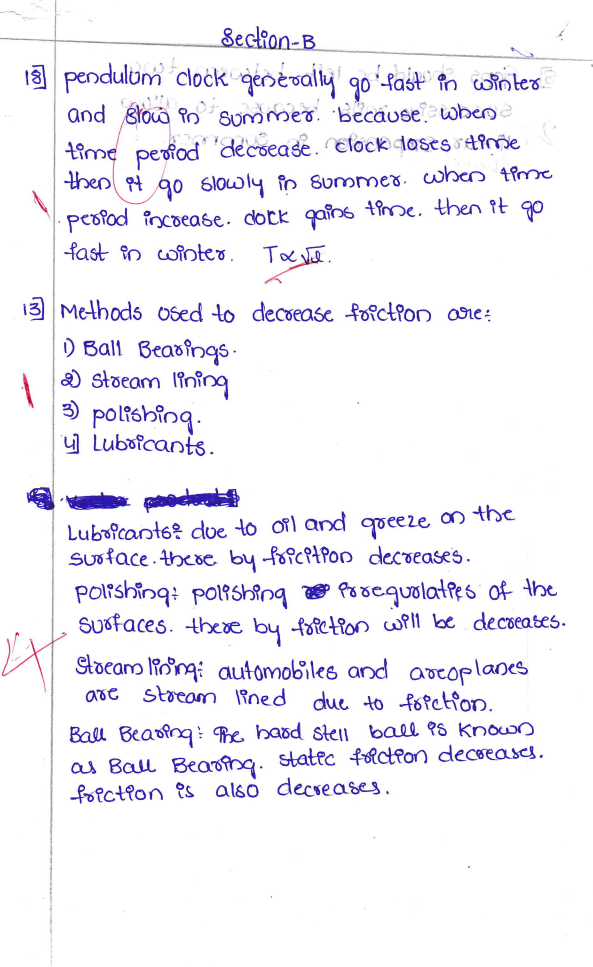 Section-B
18] pendulum clock generally go fast in winter
and slow in summer. because. when
time period decrease. clock loses time
then it go slowly in summer. when time
period increase. clock gains time. then it go
fast in winter. T∝√l.
13] Methods used to decrease friction are:
1) Ball Bearings.
2) Stream lining
3) polishing.
4] Lubricants.
Lubricants: due to oil and greeze on the
surface. there by fricition decreases.
polishing: polishing irregulaties of the
surfaces. there by friction will be decreases.
Stream lining: automobiles and areoplanes
are stream lined due to friction.
Ball Bearing: The hard stell ball is known
as Ball Bearing. static friction decreases.
friction is also decreases.